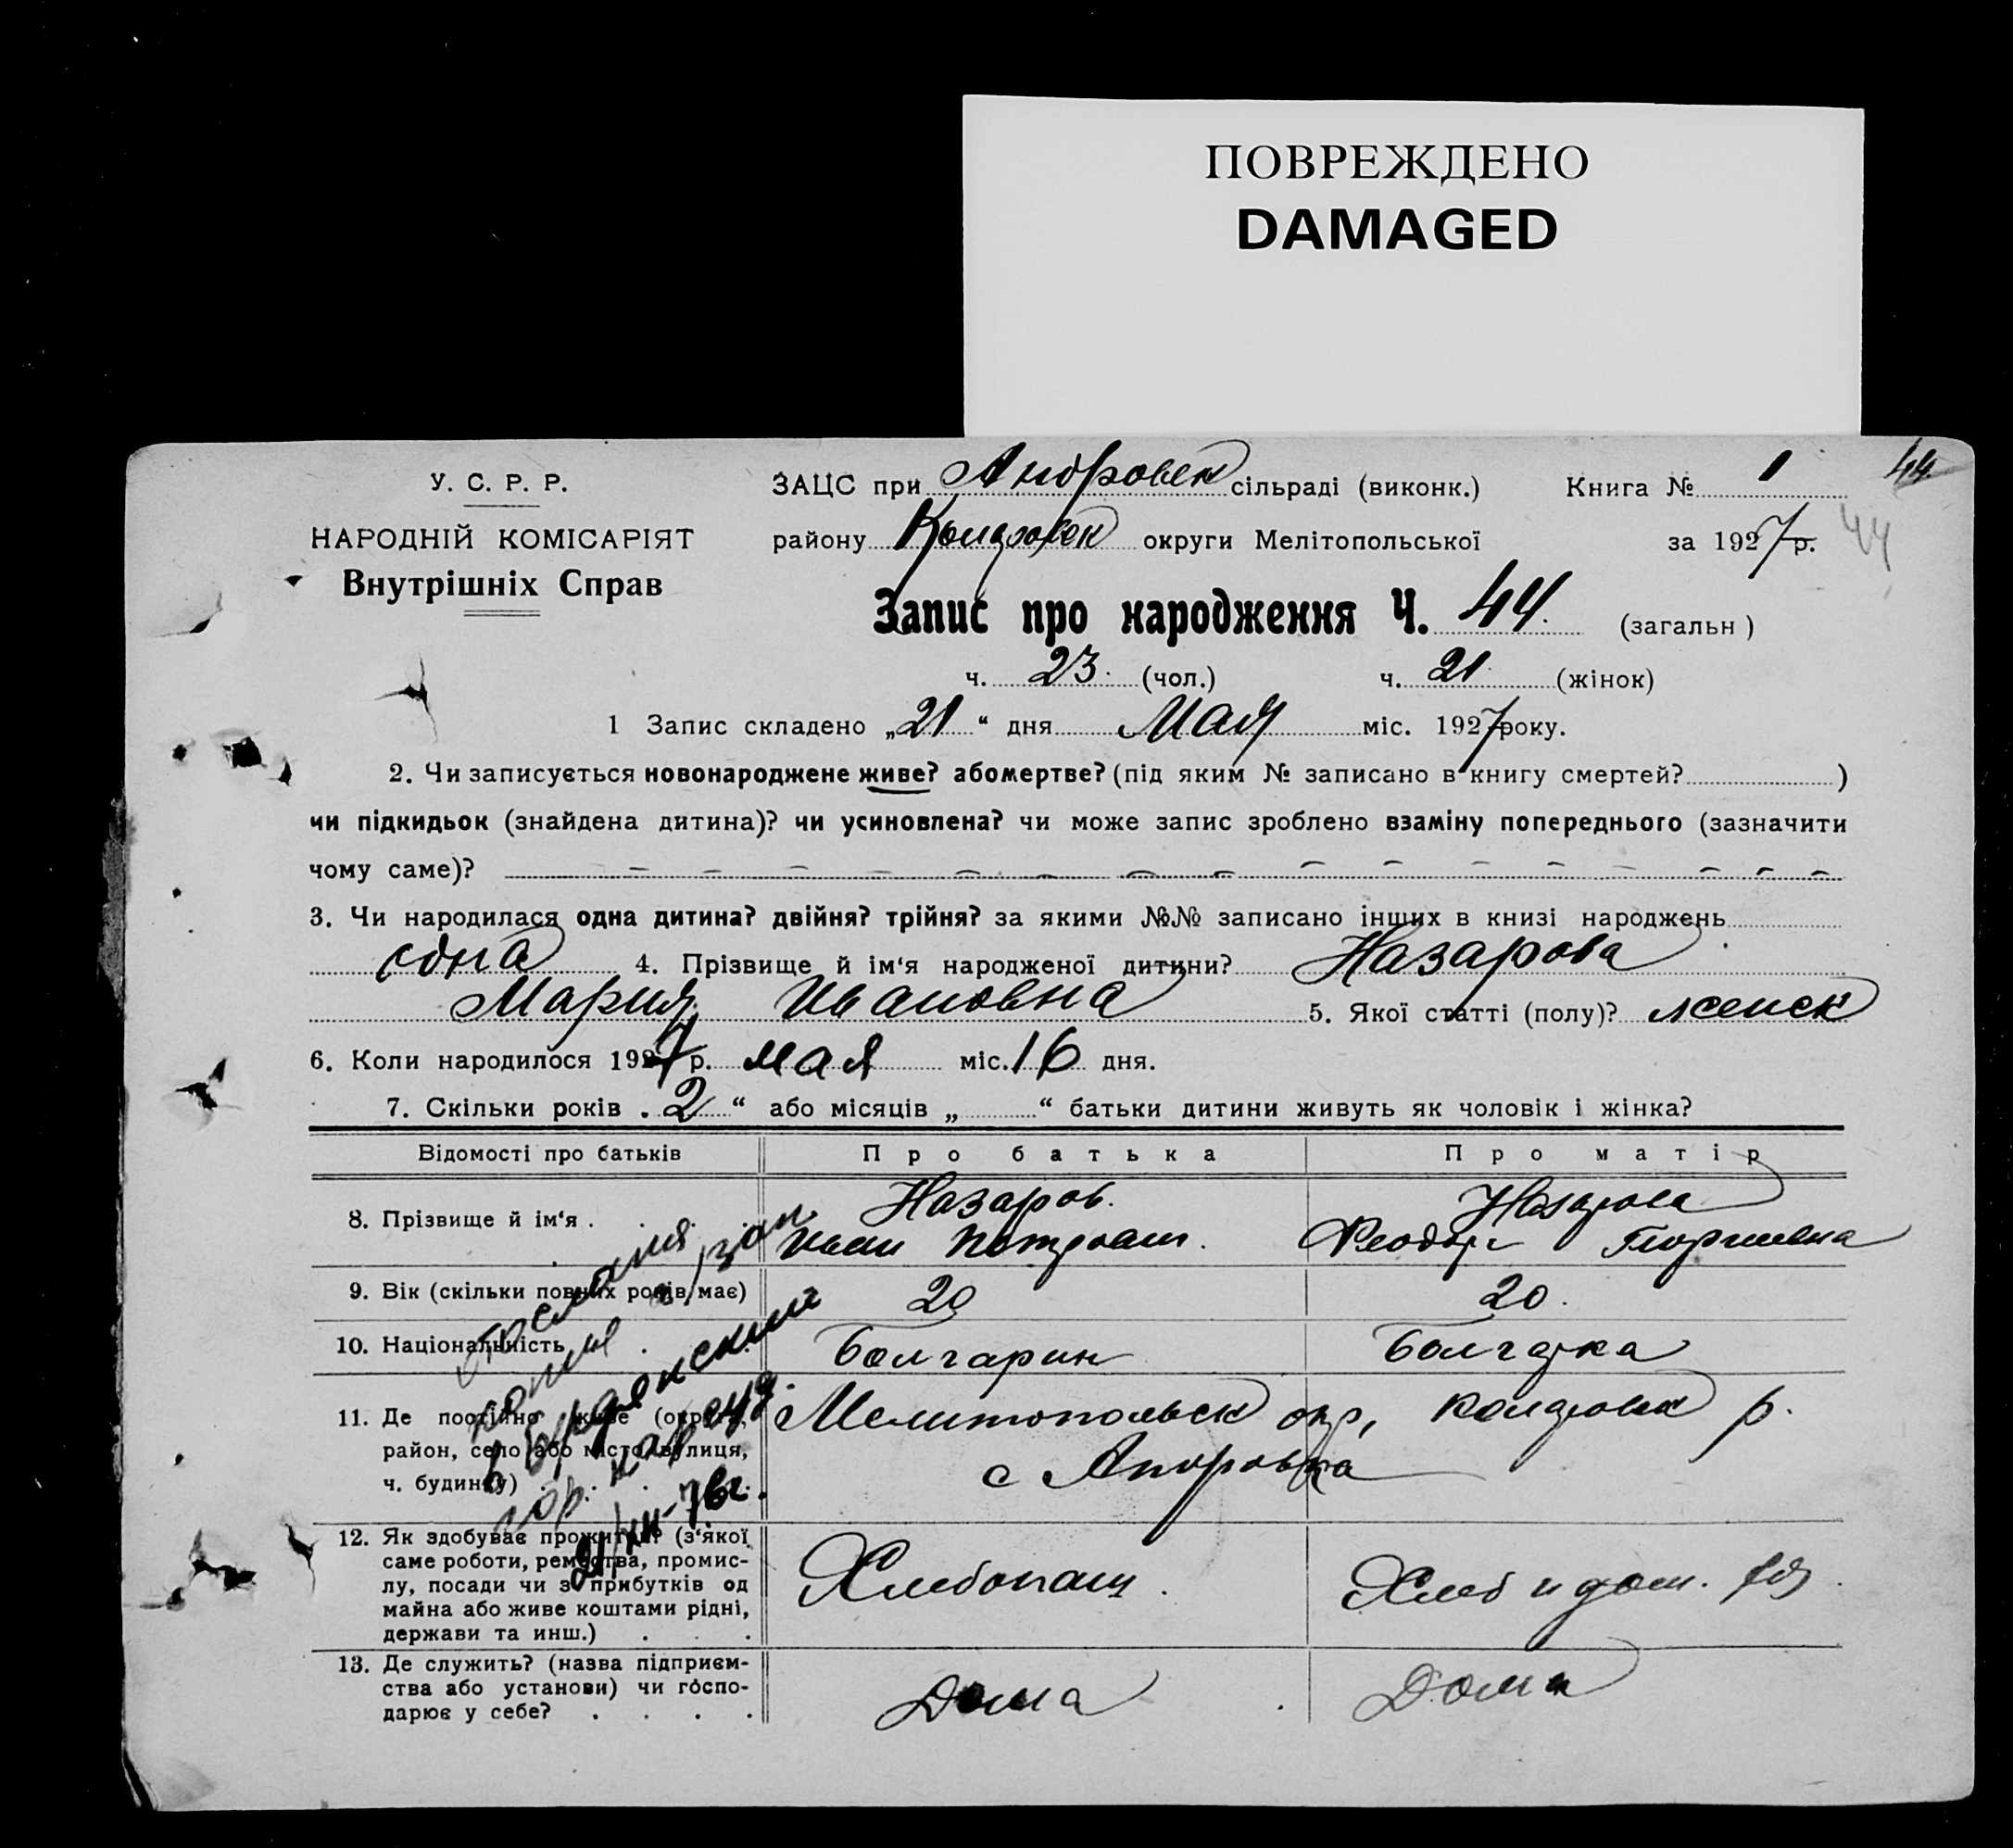 ПОВРЕЖДЕНО
DAMAGED
У. С. Р. Р.
НАРОДНІЙ КОМІСАРІЯТ
Внутрішніх Справ
ЗАЦС при Андровск сільраді (виконк.) Книга № 1 44
району Коларовск округи Мелітопольської за 1927 р. 44
Запис про народження Ч. 44. (загальн )
ч. 23. (чол.) ч. 21. (жінок)
1 Запис складено „21“ дня Мая міс. 1927 року.
2. Чи записується новонароджене живе? або мертве? (під яким № записано в книгу смертей? )
чи підкидьок (знайдена дитина)? чи усиновлена? чи може запис зроблено взаміну попереднього (зазначити
чому саме)?
3. Чи народилася одна дитина? двійня? трійня? за якими №№ записано інших в книзі народжень
одна 4. Прізвище й ім‘я народженої дитини? Назарова
Мария Ивановна 5. Якої статті (полу)? женск
6. Коли народилося 1927 р. мая міс. 16 дня.
7. Скільки років „2“ або місяців „ “ батьки дитини живуть як чоловік і жінка?
Відомості про батьків Про батька Про матір
8. Прізвище й ім‘я . Назаров. Назарова
Иван Петрович. Феодора Георгиевна
9. Вік (скільки повних років має) 20 20.
10. Національність Болгарин Болгарка
11. Де постійно живе (округа, Мелитопольск окр, Коларовск р.
район, село або місто, вулиця, с Андровка
ч. будинку)
12. Як здобуває прожиток? (з‘якої
саме роботи, ремества, промис-
лу, посади чи з прибутків од Хлебопаш. Хлеб и дом.
майна або живе коштами рідні,
держави та инш.)
13. Де служить? (назва підприєм-
ства або установи) чи госпо- Дома Дома
дарює у себе?
отослана
копия
в Бердянский
гор. нар суд.
21/XII-76г.